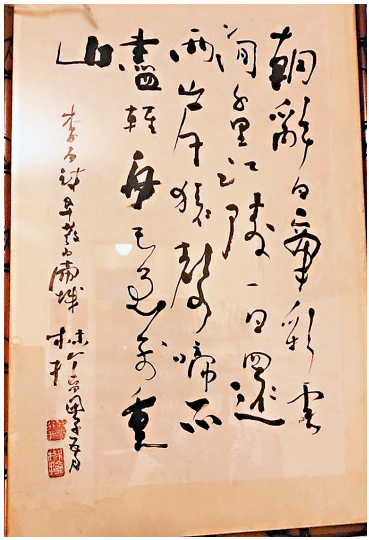 朝辭白帝彩雲
間千里江陵一日還
兩岸猿聲啼不
盡輕舟已過萬重
山
李白詩早發白帝城